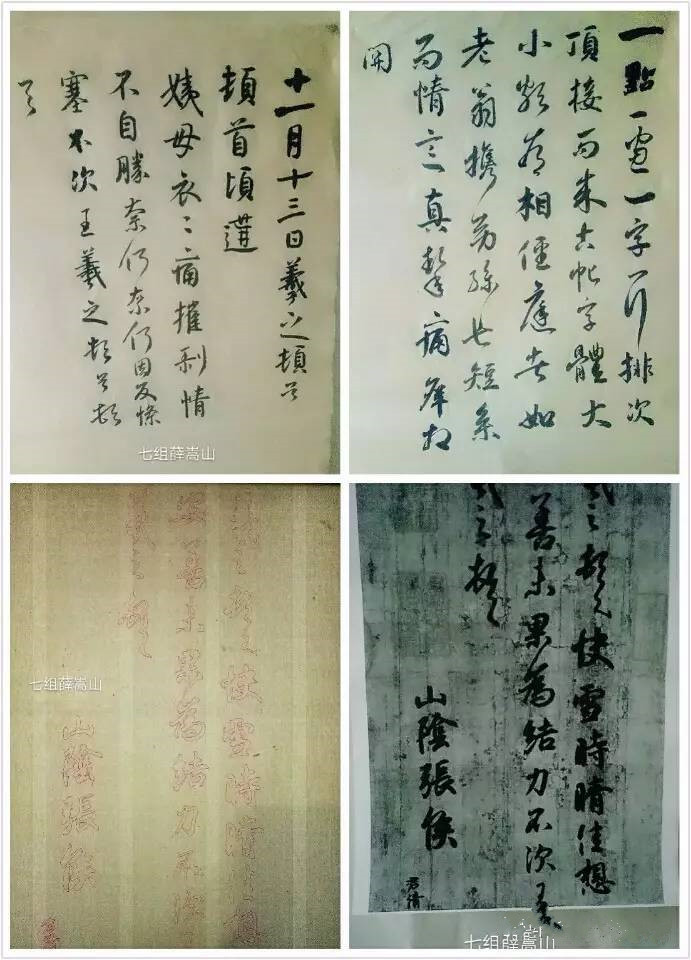 十一月十三日羲之頓首
頓首頃遘
姨母哀〻痛摧剝情
不自勝奈何奈何因反慘
塞不次王羲之頓首頓
首
七组薛嵩山
一點一畫一字一行排次
頂接而来古帖字體大
小頗有相徑庭者如
老翁攜幼孫长短參
而情意真摯痛癢相
関
羲之頓首快雪時晴佳想
安善未果為結力不次
羲之頓首
山陰張侯
七组薛嵩山
羲之頓首快雪時晴佳想
善未果為結力不次王
羲之頓首
山陰張侯
君倩
七组薛嵩山